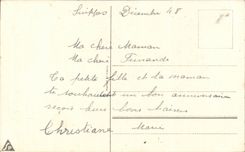 Décembre 48
Ma chère Maman
Ma chère Fernande
Ta petite fille et ta maman
te souhaitent un bon anniversaire
reçois leurs bons baisers
Christiane Marie